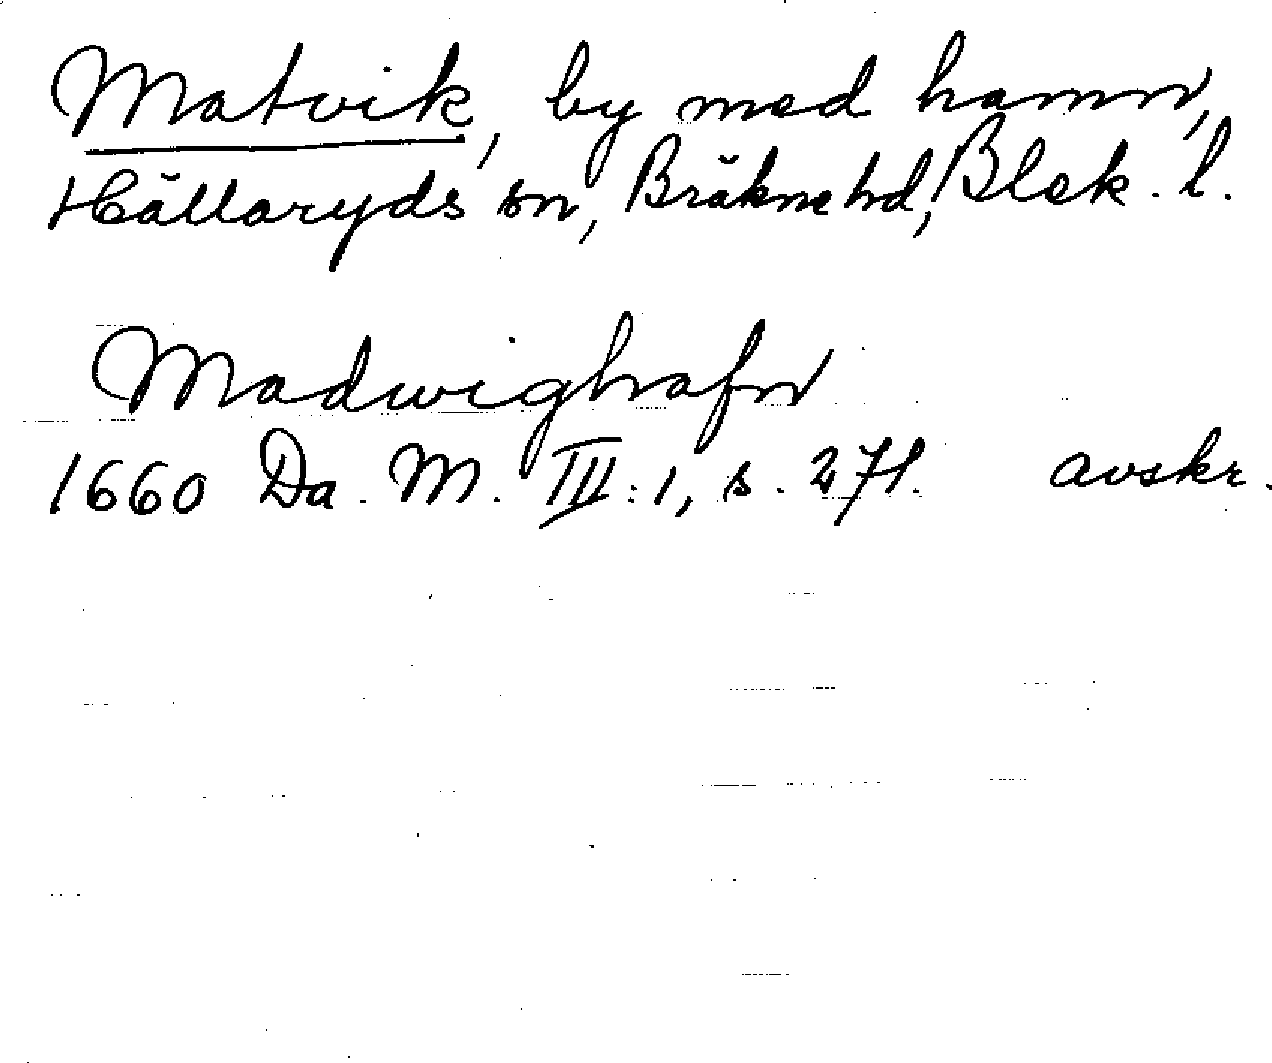 Matvik, by med hamn,
Hällaryds sn, Bräkne hd, Blek. l.
Madwighafn
1660 Da. M. III:1, s. 271. avskr.